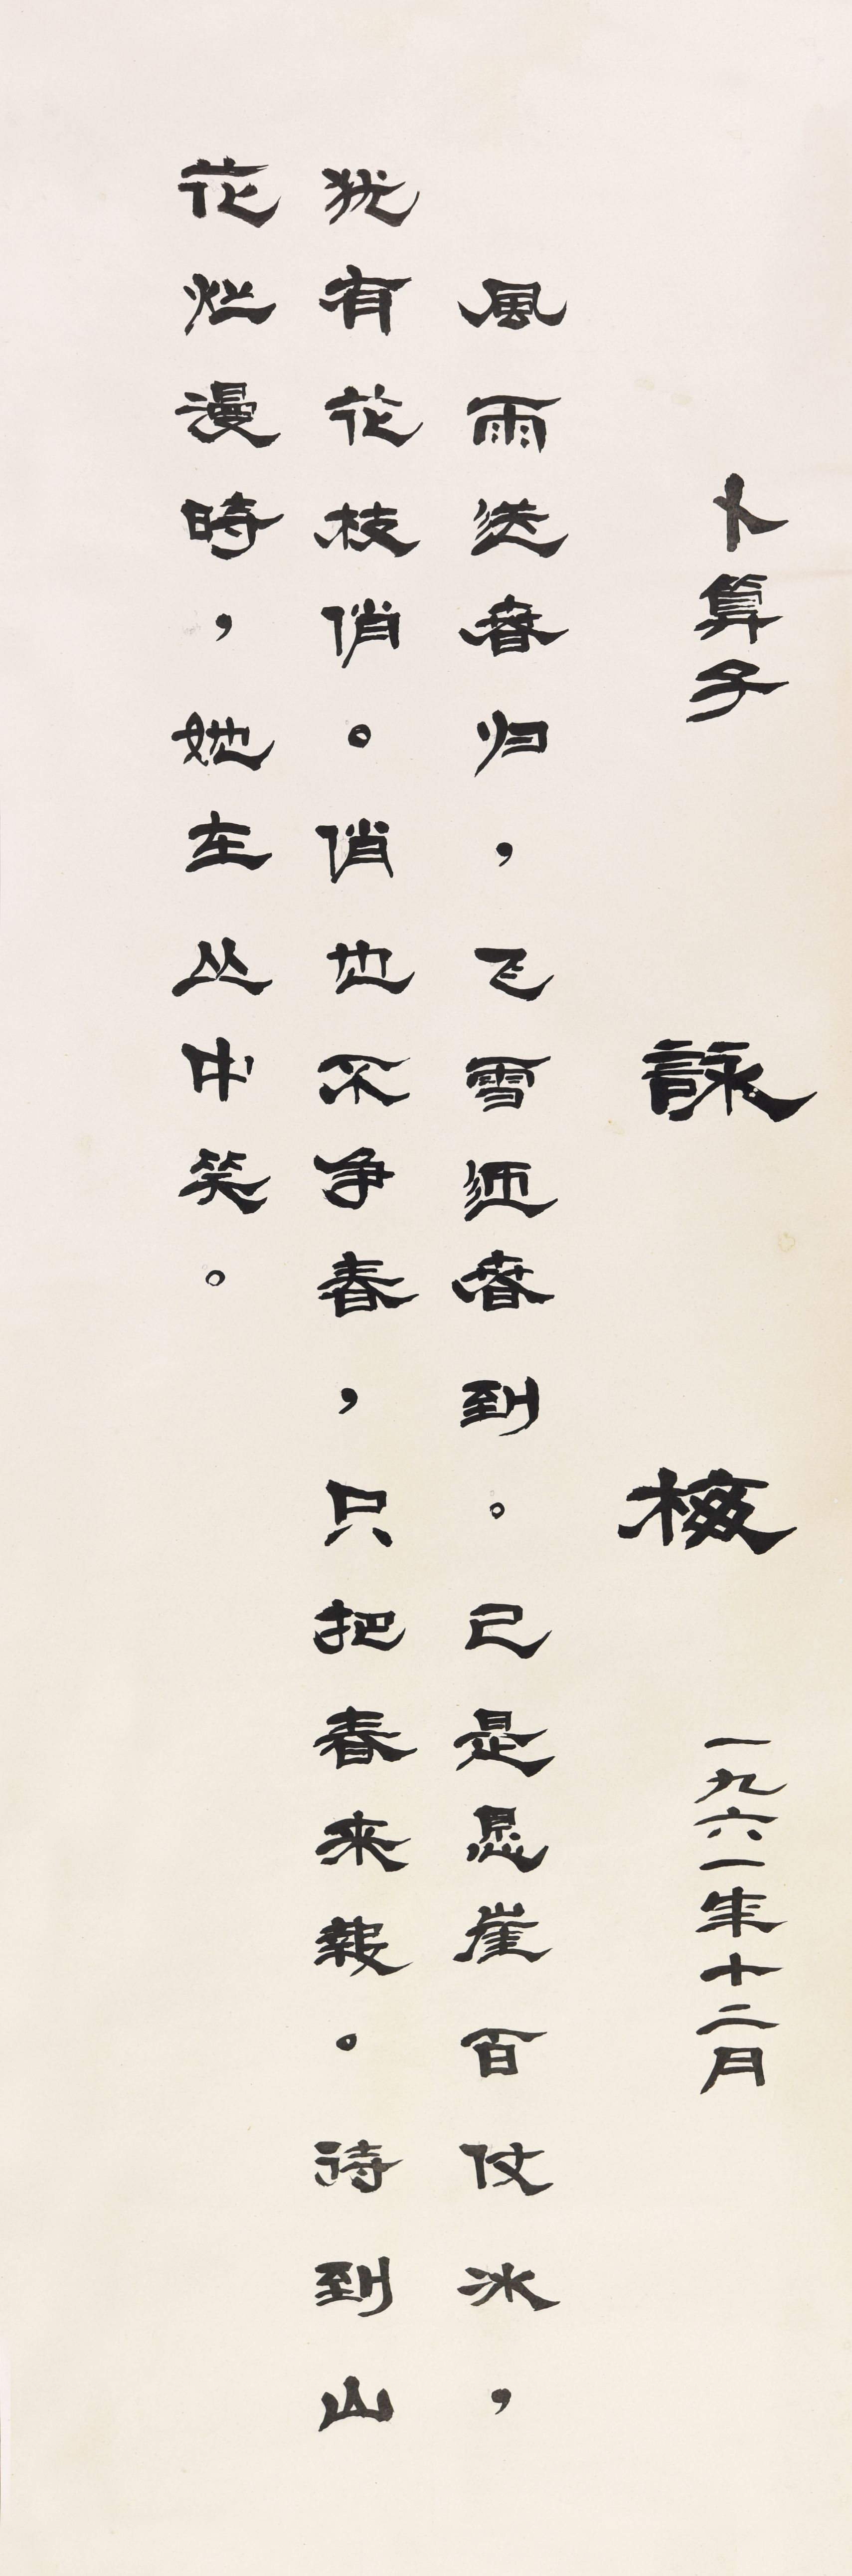 卜算子 詠梅 一九六一年十二月
風雨送春归，飞雪迎春到。已是悬崖百仗冰，
犹有花枝俏。俏也不争春，只把春来報。待到山
花烂漫時，她在丛中笑。